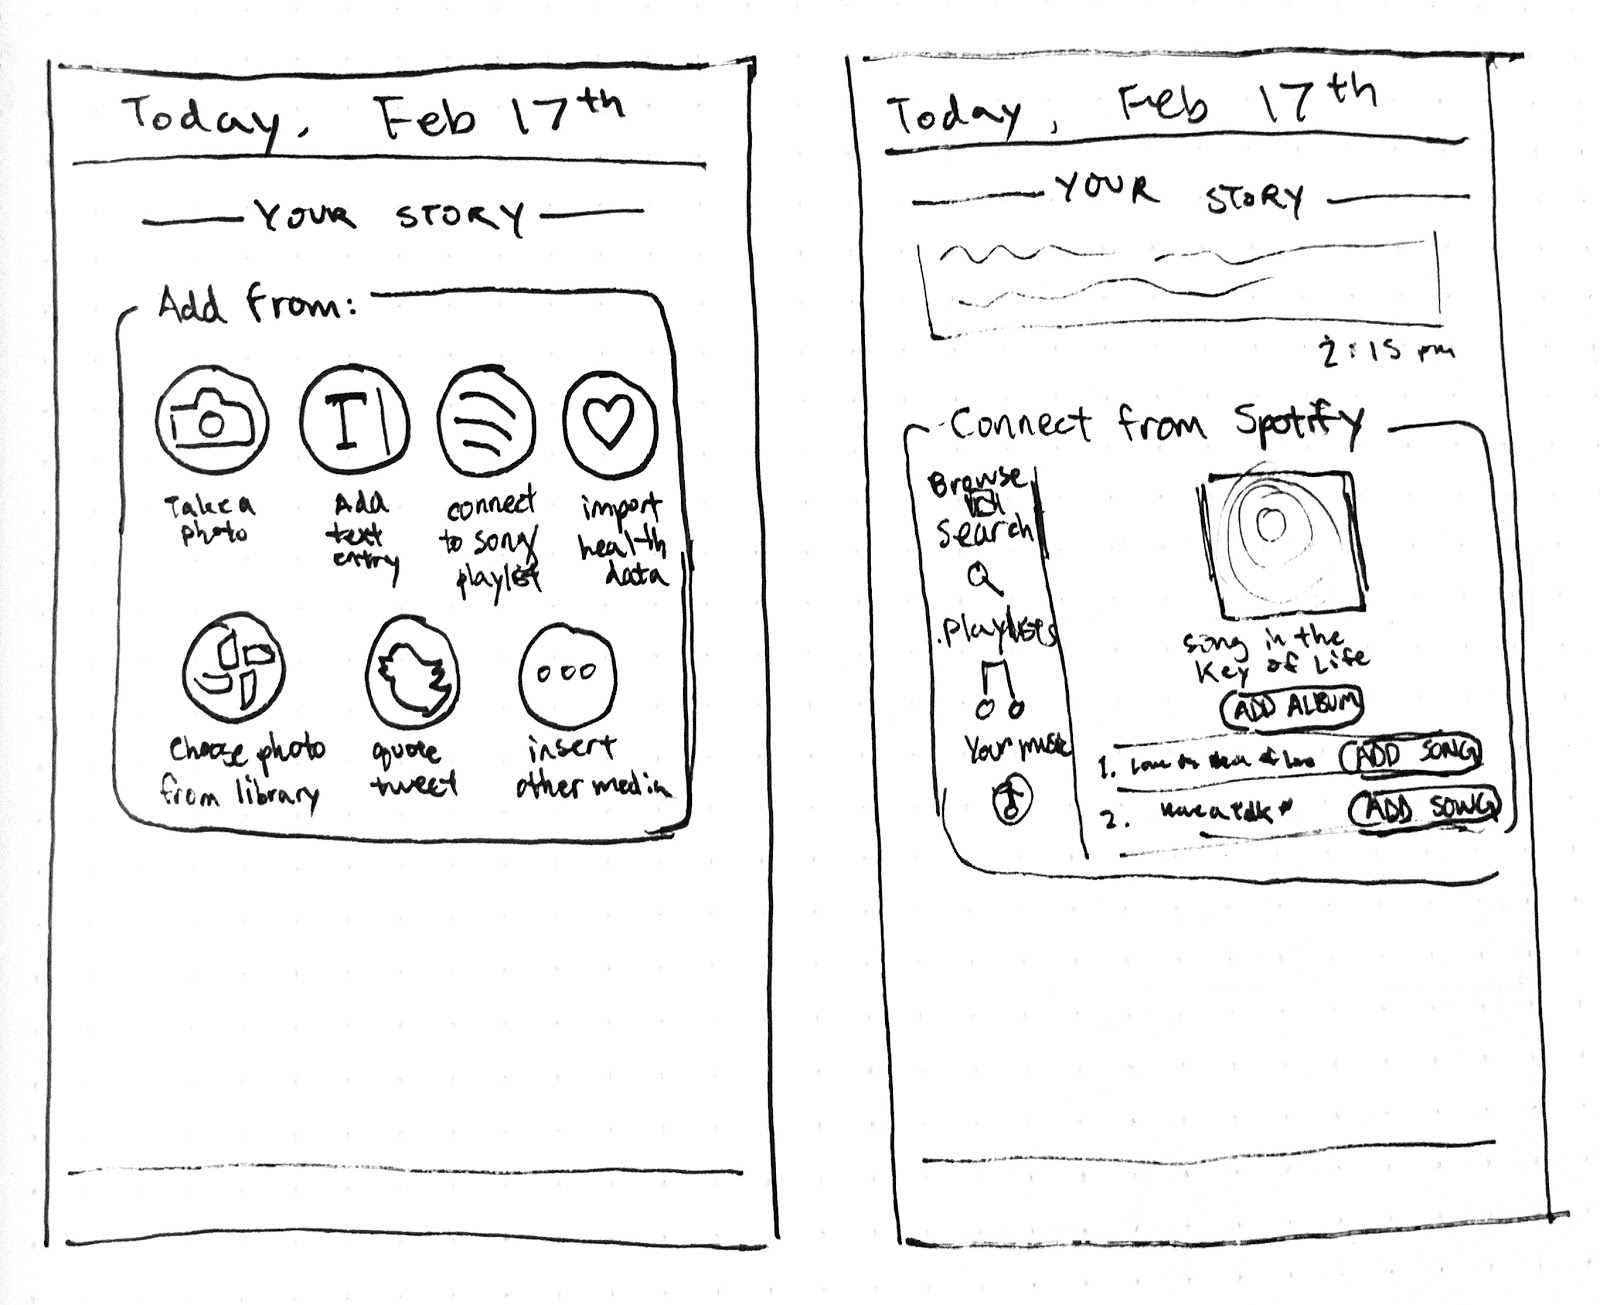 Today, Feb 17th
YOUR STORY
Add from:
Take a
photo
Add
text
entry
connect
to song/
playlist
import
health
data
Choose photo
from library
quote
tweet
insert
other media
Today, Feb 17th
YOUR STORY
2:15 pm
Connect from Spotify
Browse
Search
Playlists
Your music
song in the
Key of Life
ADD ALBUM
1. Love in of ADD SONG
2. Have a Talk ADD SONG